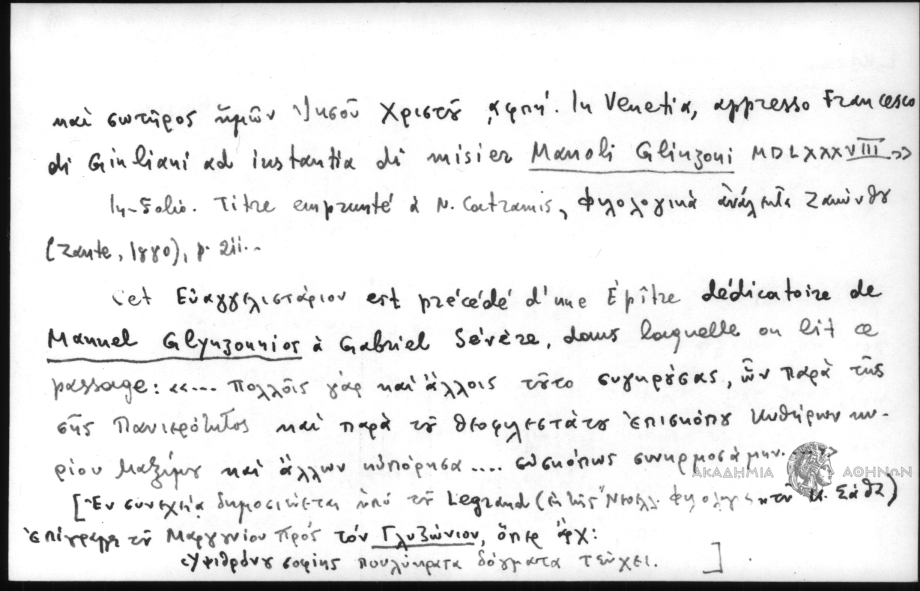 καὶ σωτῆρος ἡμῶν Ἰησοῦ Χριστοῦ ͵αφπή. In Venetia, appresso Francesco
di Giuliani ad instantia di misier Manoli Glinzoni MDLXXXVIII.»
In-folio. Titre emprunté à N. Catramis, Φιλολογικὰ ἀνάλεκτα Ζακύνθου
(Zante, 1880), p. 211..
Cet Εὐαγγελιστάριον est précédé d'une Épître dédicatoire de
Manuel Glynzounios à Gabriel Sévère, dans laquelle on lit ce
passage: «.... πολλοῖς γὰρ καὶ ἄλλοις τοῦτο συγκρούσας, ὧν παρὰ τῆς
σῆς Πανιερότητος καὶ παρὰ τοῦ θεοφιλεστάτου ἐπισκόπου Κυθήρων κυ-
ρίου Μαξίμου καὶ ἄλλων ηὐπόρησα .... εὐσκόπως συνηρμοσάμην.
[Ἐν συνεχείᾳ δημοσιεύεται ὑπὸ τοῦ Legrand (ἐκ τῆς Νεοελλ. Φιλολογίας τοῦ Κ. Σάθα)
ἐπίγραμμα τοῦ Μαργουνίου πρὸς τὸν Γλυζώνιον, ὅπερ ἄρχ:
Ὑψιθρόνου σοφίης πουλύκρατα δόγματα τεύχει. ]
ΑΚΑΔΗΜΙΑ ΑΘΗΝΩΝ